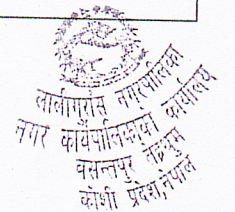 लालीगुराँस नगरपालिका
नगर कार्यपालिकाको कार्यालय
वसन्तपुर तेह्रथुम
कोशी प्रदेश, नेपाल